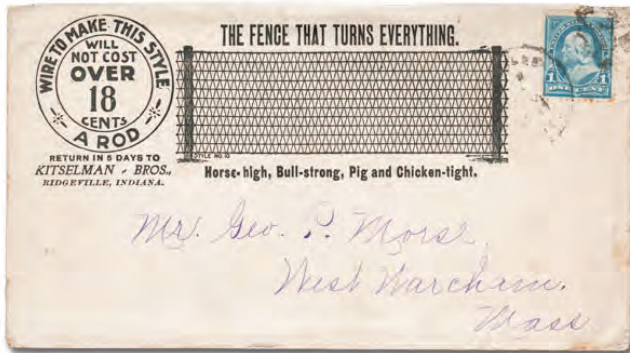 WIRE TO MAKE THIS STYLE
WILL
NOT COST
OVER
18
CENTS
A ROD
RETURN IN 5 DAYS TO
KITSELMAN BROS.,
RIDGEVILLE, INDIANA.
THE FENCE THAT TURNS EVERYTHING.
STYLE NO. 10
Horse-high, Bull-strong, Pig and Chicken-tight.
1 1
ONE CENT
Mr. Geo. P. Morse,
West Warcham.
Mass